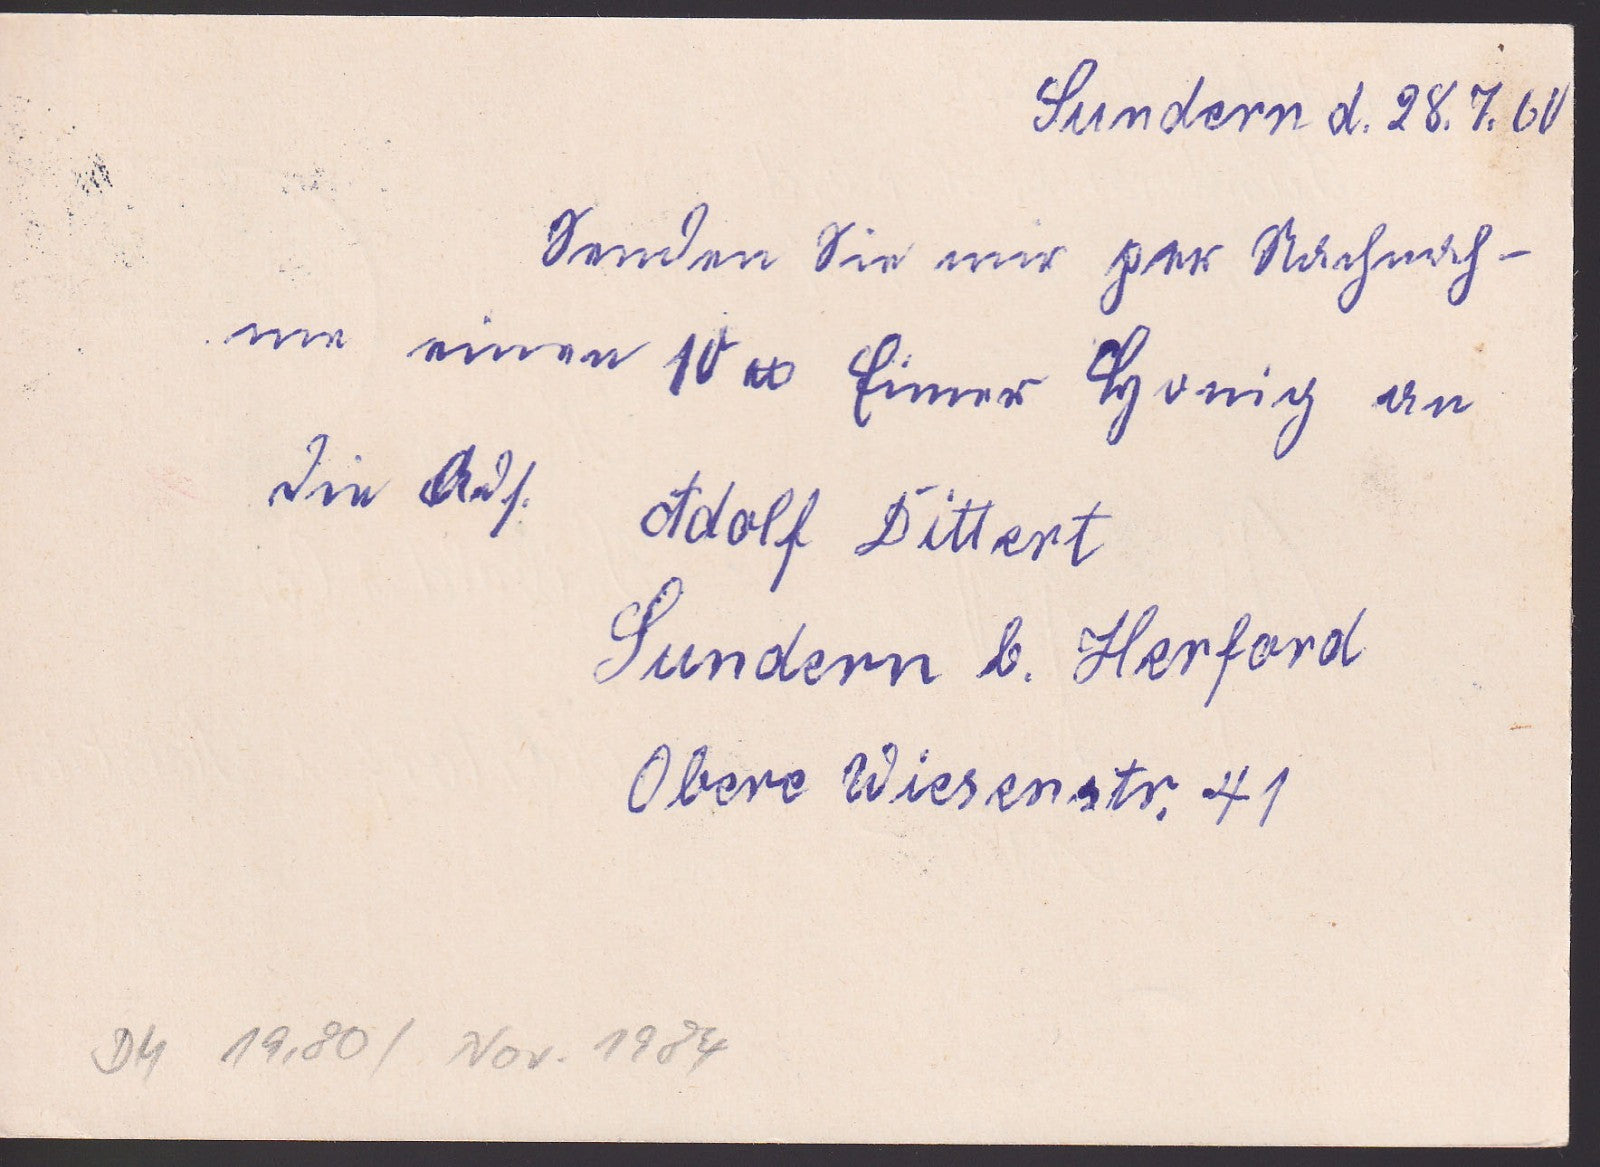 Sundern d. 28.7.60
Senden Sie mir per Nachnah-
me einen 10 ℔ Eimer Honig an
die Adr. Adolf Dittert
Sundern b. Herford
Obere Wiesenstr. 41
DM 19,80 / Nov. 1984